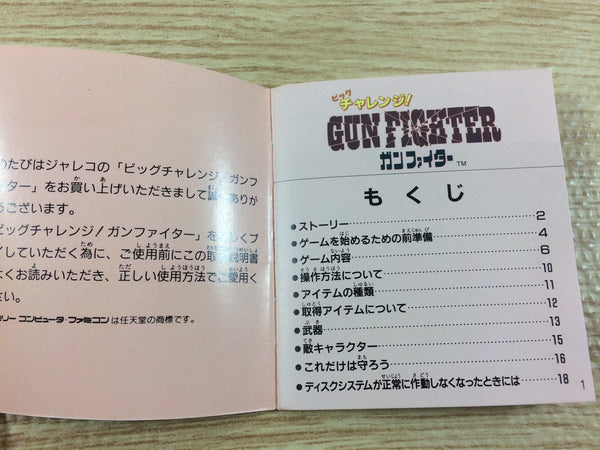 のたびはジャレコの「ビッグチャレンジ!ガンフ
イター」をお買い上げいただきまして誠
ありが
うございます。
ビッグチャレンジ!ガンファイター」を
しくプ
イしていただく為に、ご使用前にこの取
説明書
よくお読みいただき、正しい使用方法でご愛用く
さい。
ミリー コンピュータ・ファミコン は任天堂の商標です。
ビッグ
チャレンジ!
GUN FIGHTER
ガンファイター TM
もくじ
●ストーリー 2
●ゲームを始めるための前準備 4
●ゲーム内容 6
●操作方法について 10
●アイテムの種類 11
●取得アイテムについて 12
●武器 13
●敵キャラクター 15
●これだけは守ろう 16
●ディスクシステムが正常に作動しなくなったときには 18
1